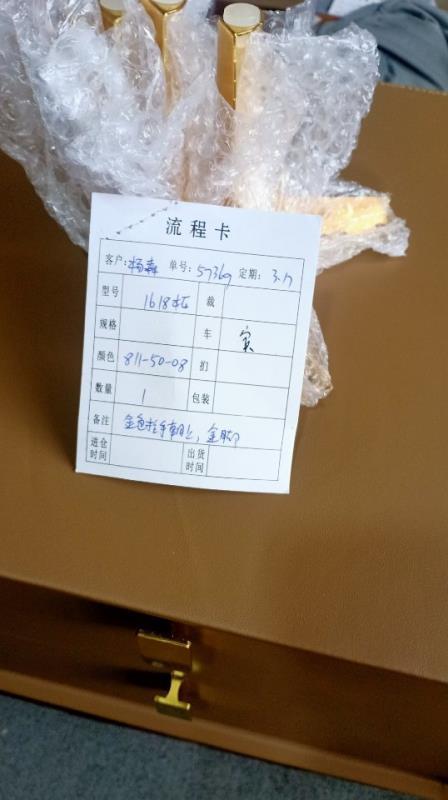 流程卡
客户:杨森 单号:57369 定期:3.17
型号 1618柜 裁
规格 车
颜色 811-50-08 扪
数量 1 包装
备注 金色拉手有配上,金脚
进仓时间 出货时间